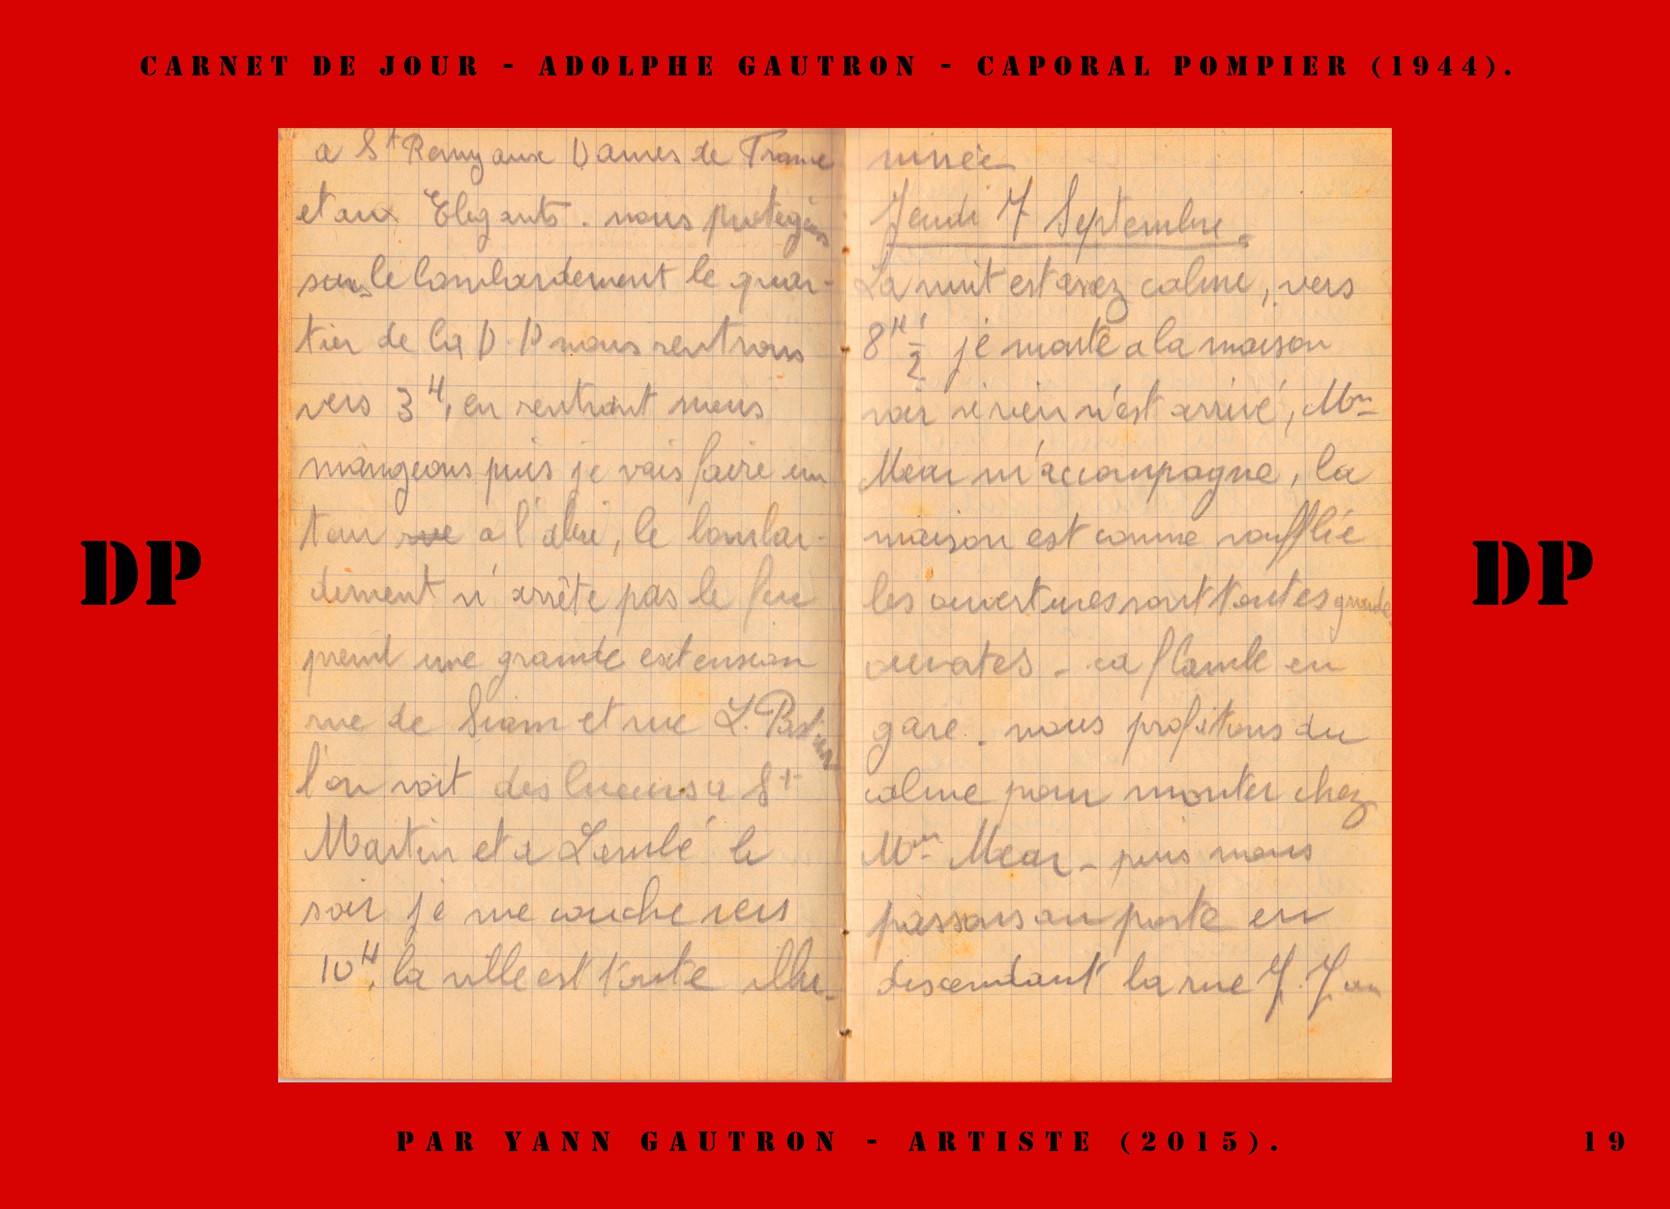 CARNET DE JOUR - ADOLPHE GAUTRON - CAPORAL POMPIER (1944).
a St Remy aux Dames de France
et aux Elegants. nous protegeons
sous le bombardement le quar-
tier de la D.P nous rentrons
vers 3H, en rentrant nous
mangeons puis je vais faire un
tour a l'abri, le bombar-
dement n'arrête pas le feu
prend une grande extension
rue de Siam et rue L. Pasteur
l'on voit des lueurs a St
Martin et a Lambé le
soir je me couche vers
10H, la ville est toute illu-
minée
Jeudi 7 Septembre.
La nuit est assez calme, vers
8H 1/2 je monte a la maison
voir si rien n'est arrivé, Mme
Mear m'accompagne, la
maison est comme soufflée
les ouvertures sont toutes grandes
ouvertes - ca flambe en
gare. nous profitons du
calme pour monter chez
Mme Mear - puis nous
passons au poste en
descendant la rue J. Jau
DP
DP
PAR YANN GAUTRON - ARTISTE (2015).
19